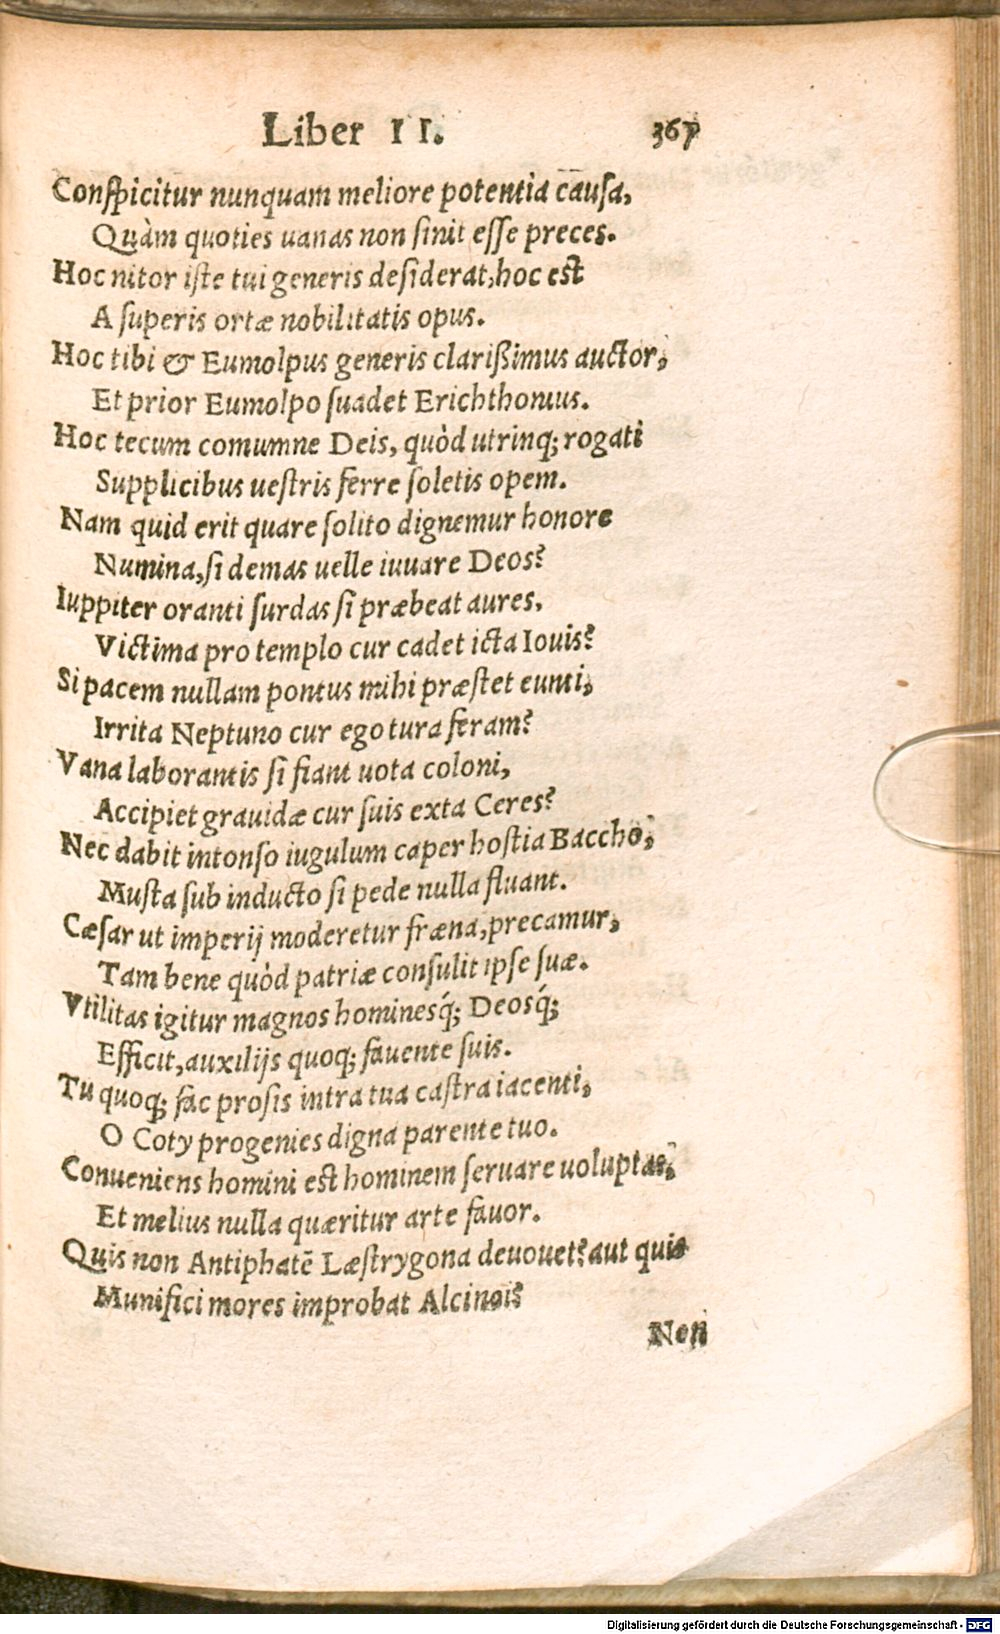 Liber II. 367
Conſpicitur nunquam meliore potentia cauſa,
Quàm quoties uanas non ſinit eſſe preces.
Hoc nitor iſte tui generis deſiderat, hoc est
A ſuperis ortæ nobilitatis opus.
Hoc tibi & Eumolpus generis clarißimus auctor,
Et prior Eumolpo ſuadet Erichthonius.
Hoc tecum comumne Deis, quòd utrinq; rogati
Supplicibus ueſtris ferre ſoletis opem.
Nam quid erit quare ſolito dignemur honore
Numina, ſi demas uelle iuuare Deos?
Iuppiter oranti ſurdas ſi præbeat aures,
Victima pro templo cur cadet icta Iouis?
Si pacem nullam pontus mihi præſtet eunti,
Irrita Neptuno cur ego tura feram?
Vana laborantis ſi fiant uota coloni,
Accipiet grauidæ cur ſuis exta Ceres?
Nec dabit intonſo iugulum caper hoſtia Baccho,
Muſta ſub inducto ſi pede nulla fluant.
Cæſar ut imperij moderetur fræna, precamur,
Tam bene quòd patriæ conſulit ipſe ſuæ.
Vtilitas igitur magnos hominesq́; Deosq́;
Efficit, auxilijs quoq; fauente ſuis.
Tu quoq; fac proſis intra tua caſtra iacenti,
O Coty progenies digna parente tuo.
Conueniens homini est hominem ſeruare uoluptas,
Et melius nulla quæritur arte fauor.
Quis non Antiphatē Læſtrygona deuouet? aut quis
Munifici mores improbat Alcinoi?
Non
Digitalisierung gefördert durch die Deutsche Forschungsgemeinschaft - DFG